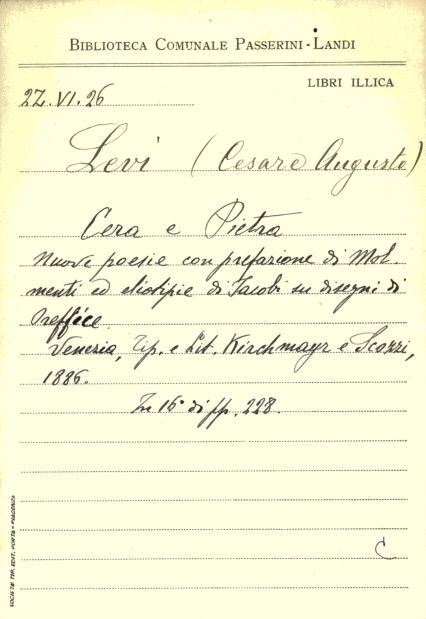 BIBLIOTECA COMUNALE PASSERINI-LANDI
LIBRI ILLICA
22.VI.26
Levi (Cesare Augusto)
Cera e Pietra
Nuove poesie con prefazione di Mol-
menti ed eliotipie di Jacobi su disegni di
Venezia, Tip. e Lit. Kirchmayr e Scozzi,
1886.
In 16° di pp. 228.
C